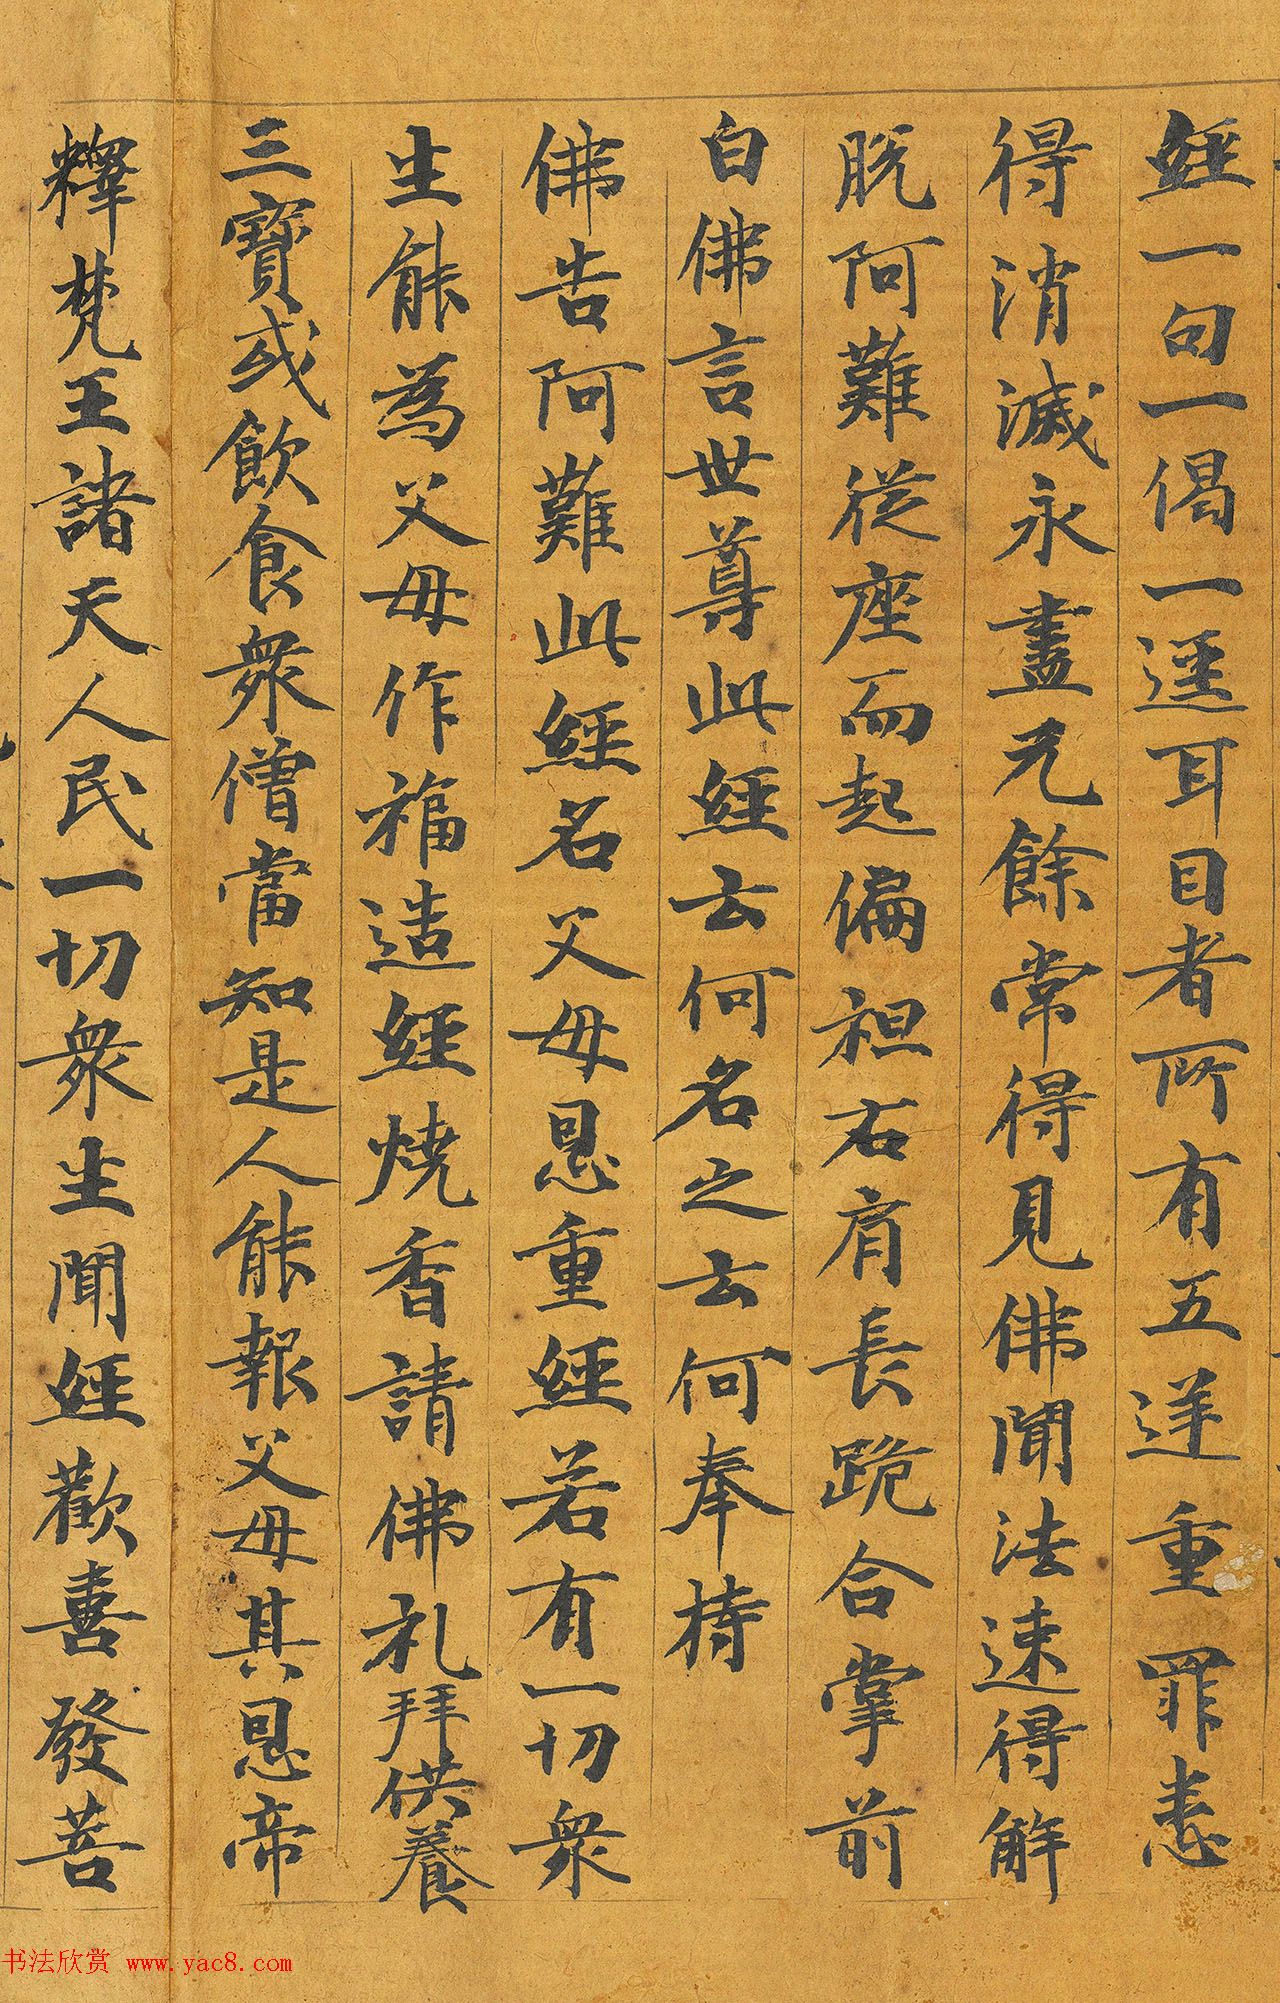 經一句一偈一逕耳目者所有五逆重罪悉
得消滅永盡无餘常得見佛聞法速得解
脱阿難從座而起偏袒右肩長跪合掌前
白佛言世尊此經云何名之云何奉持
佛告阿難此經名父母恩重經若有一切衆
生能為父母作福造經燒香請佛礼拜供養
三寶或飲食衆僧當知是人能報父母其恩帝
釋梵王諸天人民一切衆生聞經歡喜發菩
书法欣赏 www.yac8.com